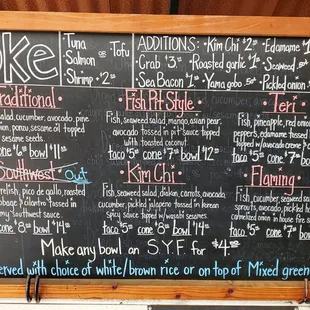 oke
Tuna • Tofu
Salmon
Shrimp • 2
ADDITIONS: • Kim Chi $2 • Edamame
• Crab $3 • Roasted garlic • Seaweed
• Sea Bacon • Yama gobo • Pickled onion
Traditional
salad, cucumber, avocado, pine
onion, ponzu, sesame oil topped
sesame seeds
cone $6 bowl $11
Fish Pit Style
Fish, seaweed salad, mango, asian pear,
avocado tossed in pit sauce topped
with toasted coconut.
taco $5 cone $7 bowl $12
Teri
Fish, pineapple, red onion
peppers, edamame tossed
w/ avocado creme
taco $5 cone $7 bow
Southwest Out
relish, pico de gallo, roasted
cabbage, cilantro tossed in
my Southwest sauce.
cone $8 bowl $14
Kim Chi
Fish, seaweed salad, daikon, carrots, avocado,
cucumber, pickled jalapeno tossed in korean
Spicy sauce topped w/ wasabi sesame.
taco $5 cone $8 bowl $14
Flaming
Fish, seaweed salad, cucumber,
sprouts, avocado, pickled
caramelized onion in house fire
taco $5 cone $8 bow
Make any bowl an S.Y.F. for $4.00
erved with choice of white/brown rice or on top of Mixed green